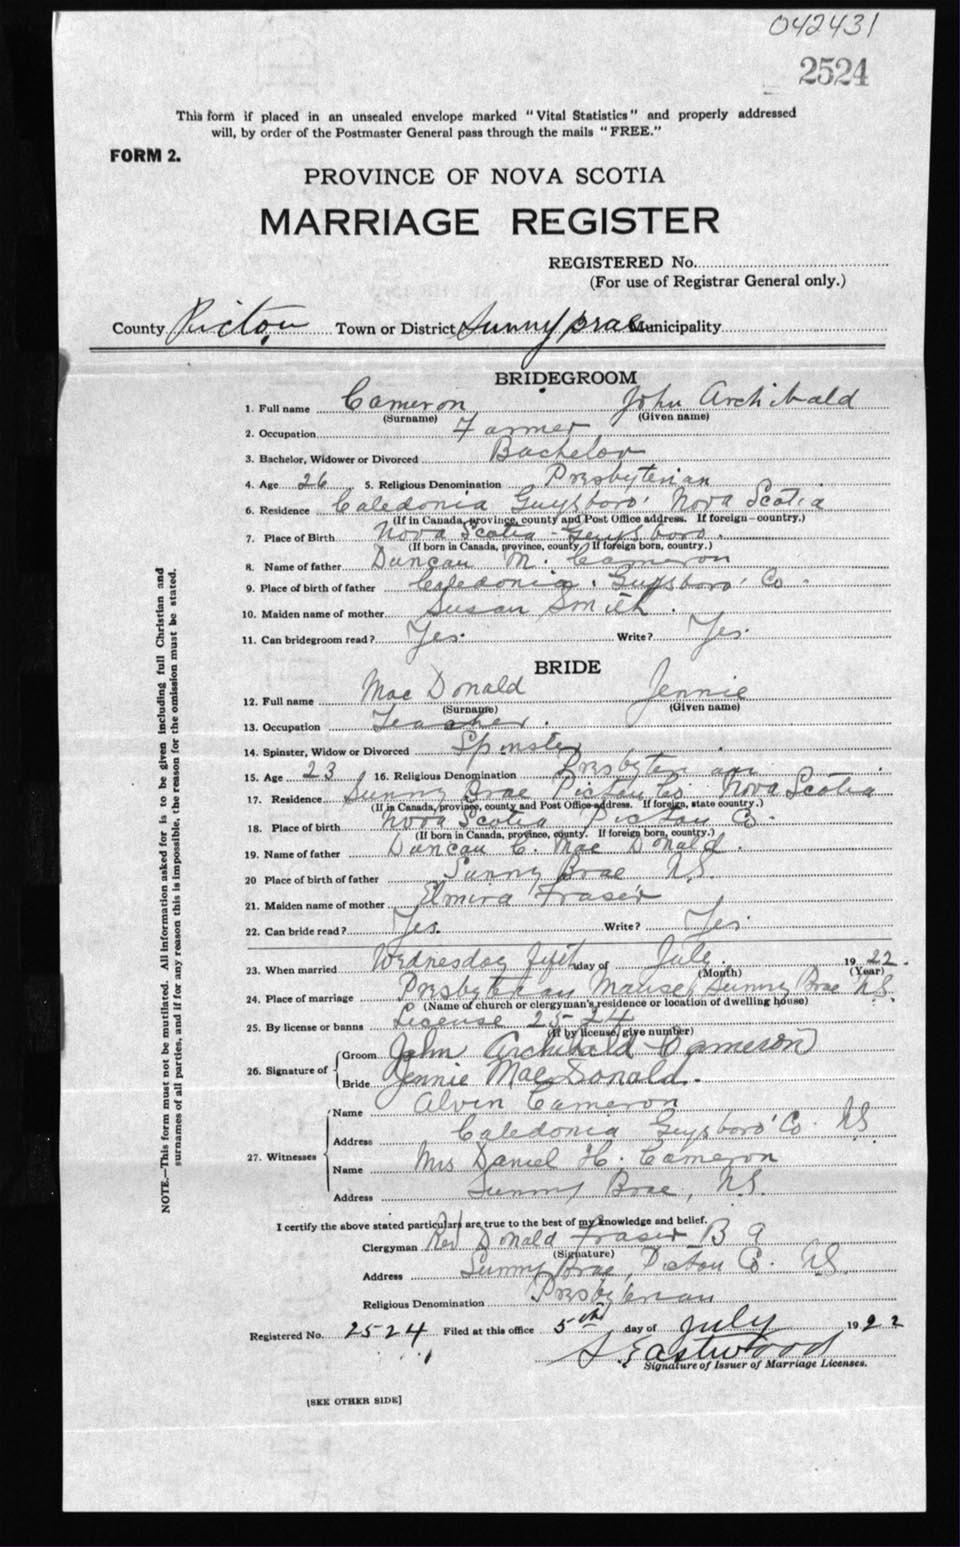 042431
2524
This form if placed in an unsealed envelope marked "Vital Statistics" and properly addressed
will, by order of the Postmaster General pass through the mails "FREE."
FORM 2.
PROVINCE OF NOVA SCOTIA
MARRIAGE REGISTER
REGISTERED No.
(For use of Registrar General only.)
County Pictou Town or District Sunny brae Municipality
BRIDEGROOM
1. Full name Cameron John Archibald
(Surname) (Given name)
2. Occupation Farmer
3. Bachelor, Widower or Divorced Bachelor
4. Age 26 5. Religious Denomination Presbyterian
6. Residence Caledonia Guysboro' Nova Scotia
(If in Canada, province, county and Post Office address. If foreign—country.)
7. Place of Birth Nova Scotia - Guysboro.
(If born in Canada, province, county. If foreign born, country.)
8. Name of father Duncan M. Cameron
9. Place of birth of father Caledonia. Guysboro' Co.
10. Maiden name of mother Susan Smith.
11. Can bridegroom read? Yes. Write? Yes.
BRIDE
12. Full name Mac Donald Jennie
(Surname) (Given name)
13. Occupation Teacher.
14. Spinster, Widow or Divorced Spinster
15. Age 23 16. Religious Denomination Presbyterian
17. Residence Sunny Brae Pictou Co. Nova Scotia
(If in Canada, province, county and Post Office address. If foreign, state country.)
18. Place of birth Nova Scotia Pictou Co.
(If born in Canada, province, county. If foreign born, country.)
19. Name of father Duncan C. Mac Donald.
20 Place of birth of father Sunny Brae N.S.
21. Maiden name of mother Elmira Fraser
22. Can bride read? Yes. Write? Yes.
23. When married Wednesday fifth day of July. 1922.
(Month) (Year)
24. Place of marriage Presbyterian Manse, Sunny Brae N.S.
(Name of church or clergyman's residence or location of dwelling house)
25. By license or banns License 2524
(If by license, give number)
26. Signature of Groom John Archibald Cameron
Bride Jennie MacDonald.
27. Witnesses Name Alvin Cameron
Address Caledonia Guysboro' Co. N.S.
Name Mrs Daniel H. Cameron
Address Sunny Brae, N.S.
I certify the above stated particulars are true to the best of my knowledge and belief.
Clergyman Rev Donald Fraser B A
(Signature)
Address Sunny Brae, Pictou Co. N.S.
Religious Denomination Presbyterian
Registered No. 2524 Filed at this office 5th day of July 1922
Eastwood
Signature of Issuer of Marriage Licenses.
[SEE OTHER SIDE]
NOTE.—This form must not be mutilated. All information asked for is to be given including full Christian and
surnames of all parties, and if for any reason this is impossible, the reason for the omission must be stated.